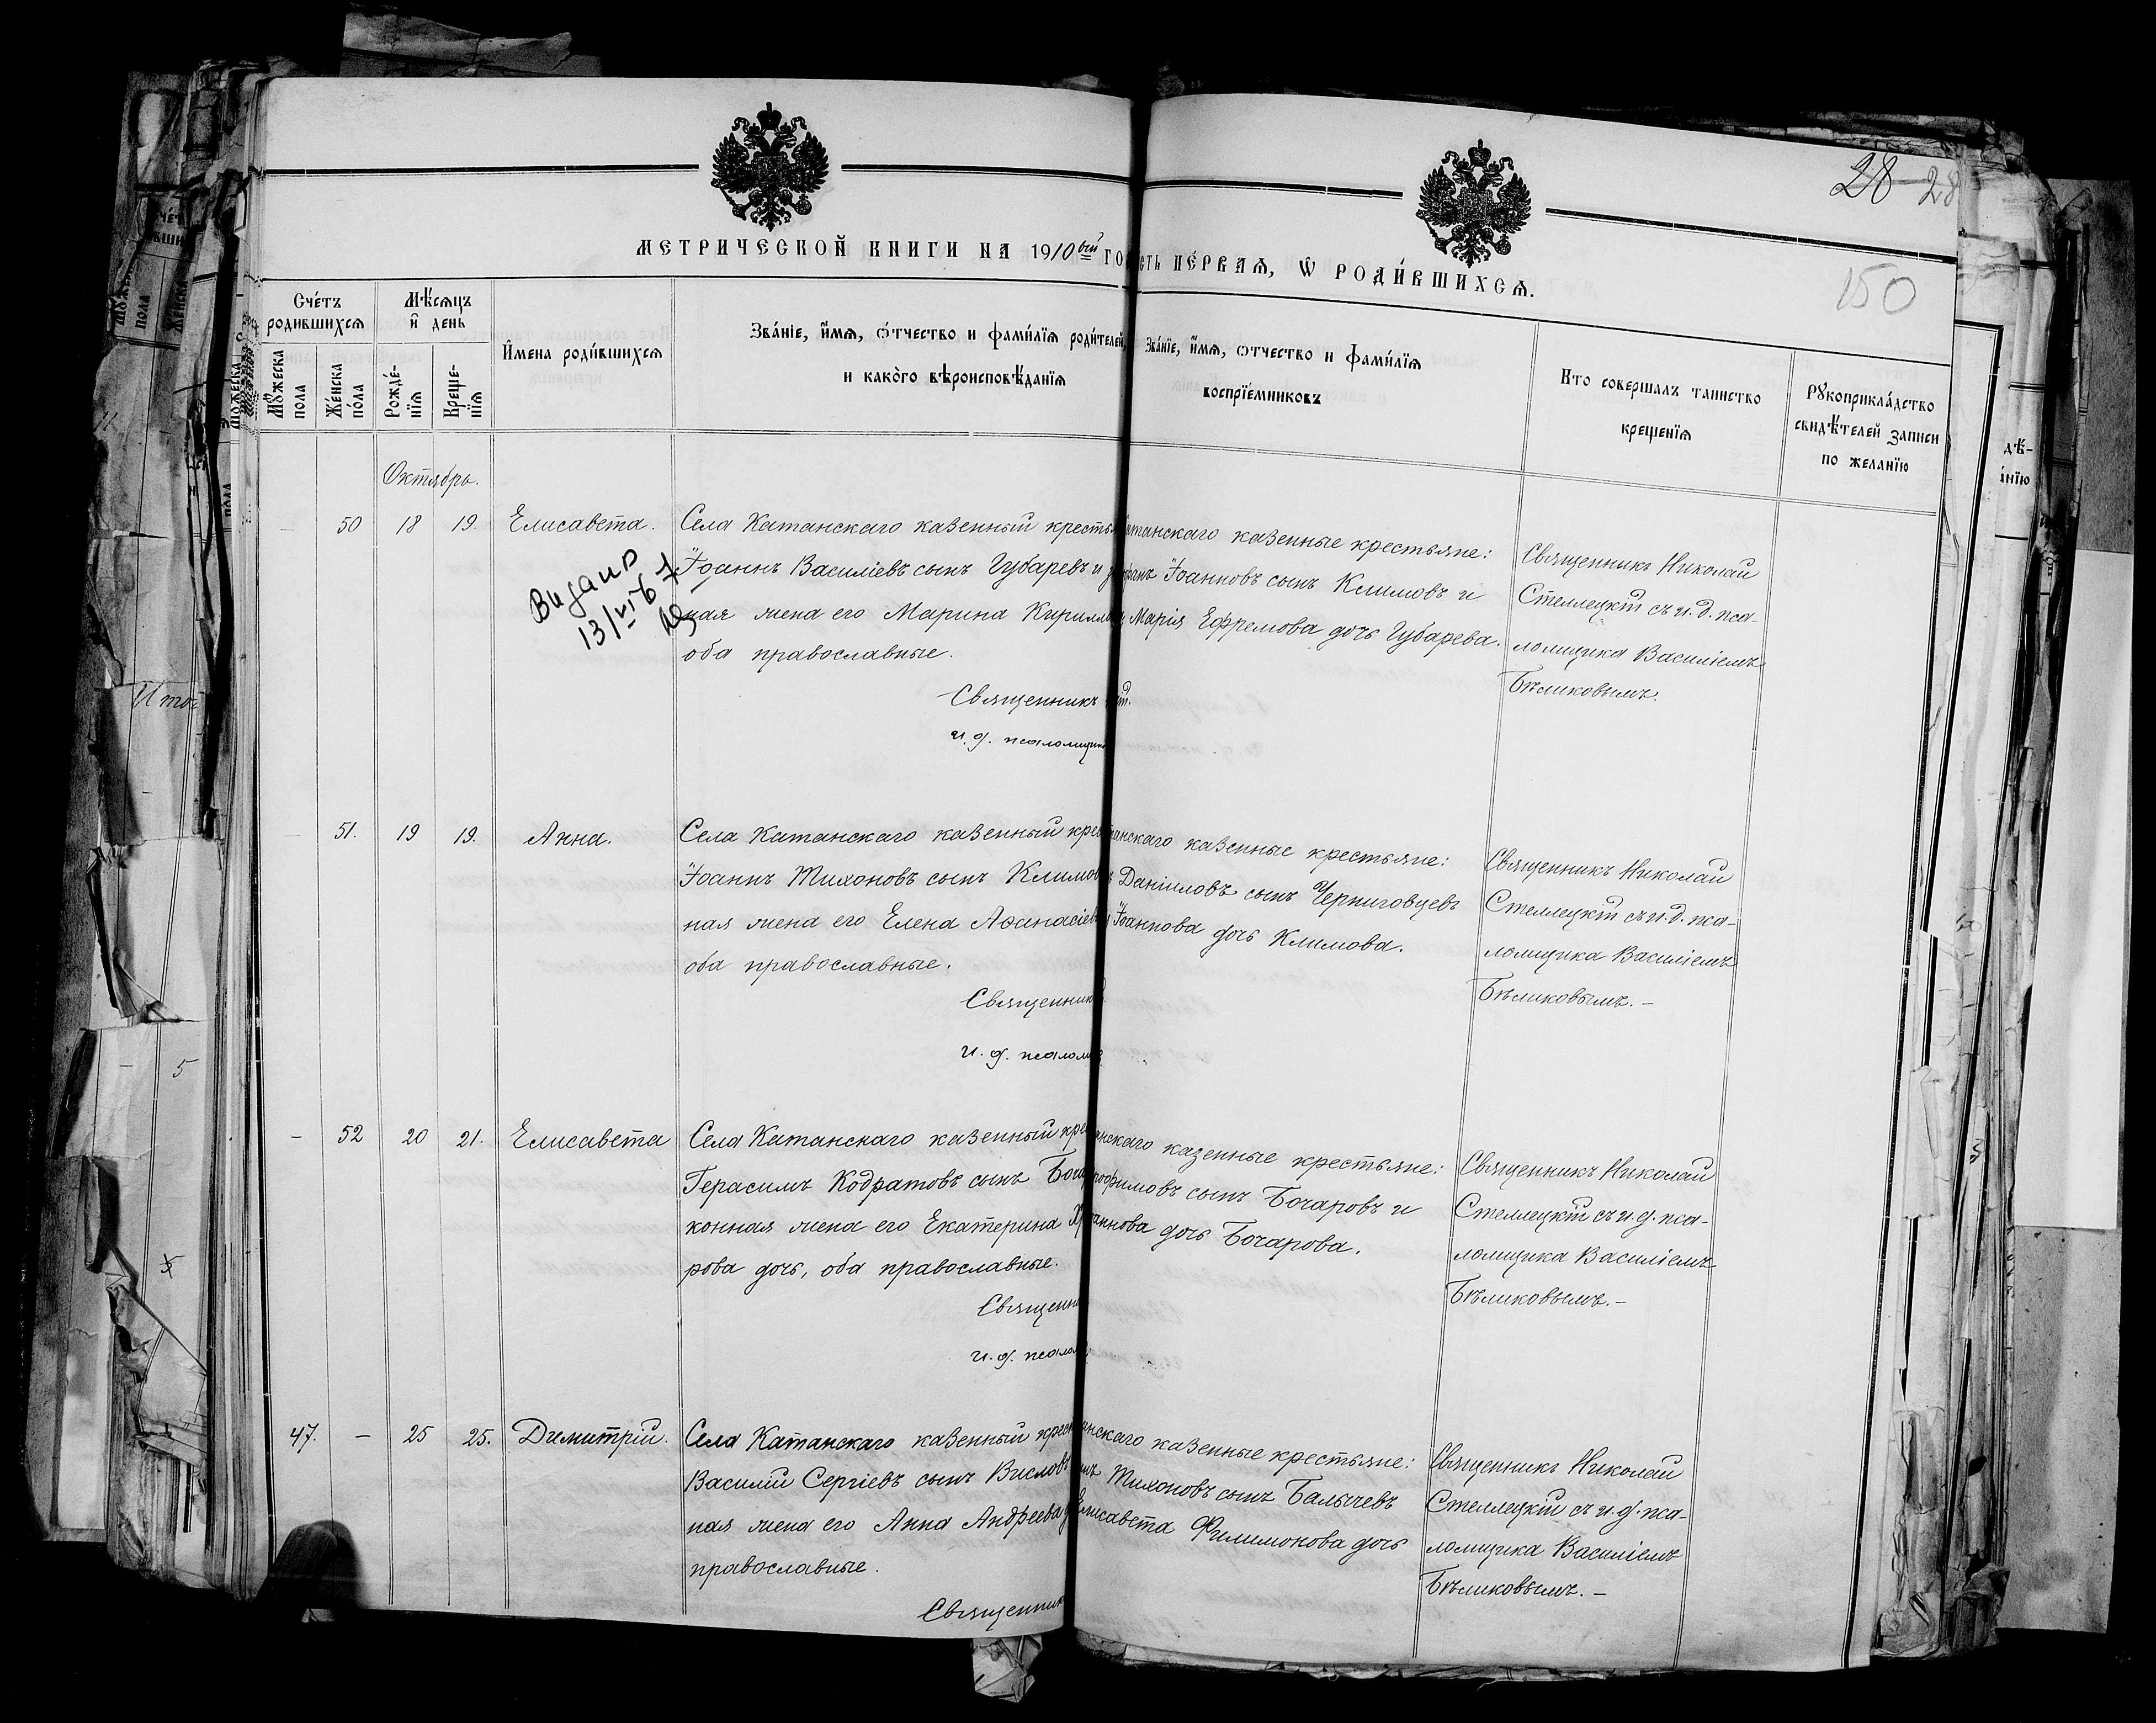 28 28
150
МЕТРИЧЕСКОЙ КНИГИ НА 1910ый ГО
СТЬ ПЕ́РВАѦ, Ѡ҆ РОДИ́ВШИХСѦ.
Сче́тъ родившихсѧ
Мѣ́сѧцъ и҆ день
Мꙋ́жеска пола
Же́нска по́ла
Рожде́-нїѧ
Креще-нїѧ
И҆мена роди́вшихсѧ
Зва́нїе, и҆́мѧ, ѻ҆́тчество и фами́лїѧ роди́телей,
и како̀го вѣроисповѣ́данїѧ
Зва́нїе, и҆́мѧ, ѻтчество и фами́лїѧ
воспрїе́мниковъ
Кто совершалъ таинство
крещенїѧ
Рꙋкоприкла́дство
свидѣ́телей записи
по желанїю
Октябрь.
50 18 19. Елисавета.
Видано
13/VI 67
Села Катанскаго казенный кресть
Іоаннъ Василіевъ сынъ Губаревъ и з
ная жена его Марина Кирилл
оба православные.
Священникъ
и. д. псаломщик
атанскаго казенные крестьяне:
Іоанновъ сынъ Климовъ и
Марія Ефремова дочь Губарева.
Священникъ Николай
Стеллецкій съ и. д. пса-
ломщика Василіемъ
Бѣликовымъ.
51. 19 19. Анна.
Села Катанскаго казенный кре
Іоаннъ Тихоновъ сынъ Климов
ная жена его Елена Аѳанасіев
оба православные.
Священник
и. д. псалом
танскаго казенные крестьяне:
Даніиловъ сынъ Черниговцевъ
Іоаннова дочь Климова.
Священникъ Николай
Стеллецкій съ и. д. пса-
ломщика Василіемъ
Бѣликовымъ. –
– 52 20 21. Елисавета
Села Катанскаго казенный кре
Герасимъ Кодратовъ сынъ Боча
конная жена его Екатерина
рова дочь, оба православные.
Священни
и. д. псалом
нскаго казенные крестьяне:
рофимовъ сынъ Бочаровъ и
аннова дочь Бочарова.
Священникъ Николай
Стеллецкій съ и. д. пса-
ломщика Василіемъ
Бѣликовымъ. –
47. – 25 25. Димитрій.
Села Катанскаго казенный крест
Василій Сергіевъ сынъ Вислов
ная жена его Анна Андреева
православные.
Священник
нскаго казенные крестьяне:
Тихоновъ сынъ Балычевъ
Елисавета Филимонова дочь
Священникъ Николай
Стеллецкій съ и. д. пса-
ломщика Василіемъ
Бѣликовымъ. –